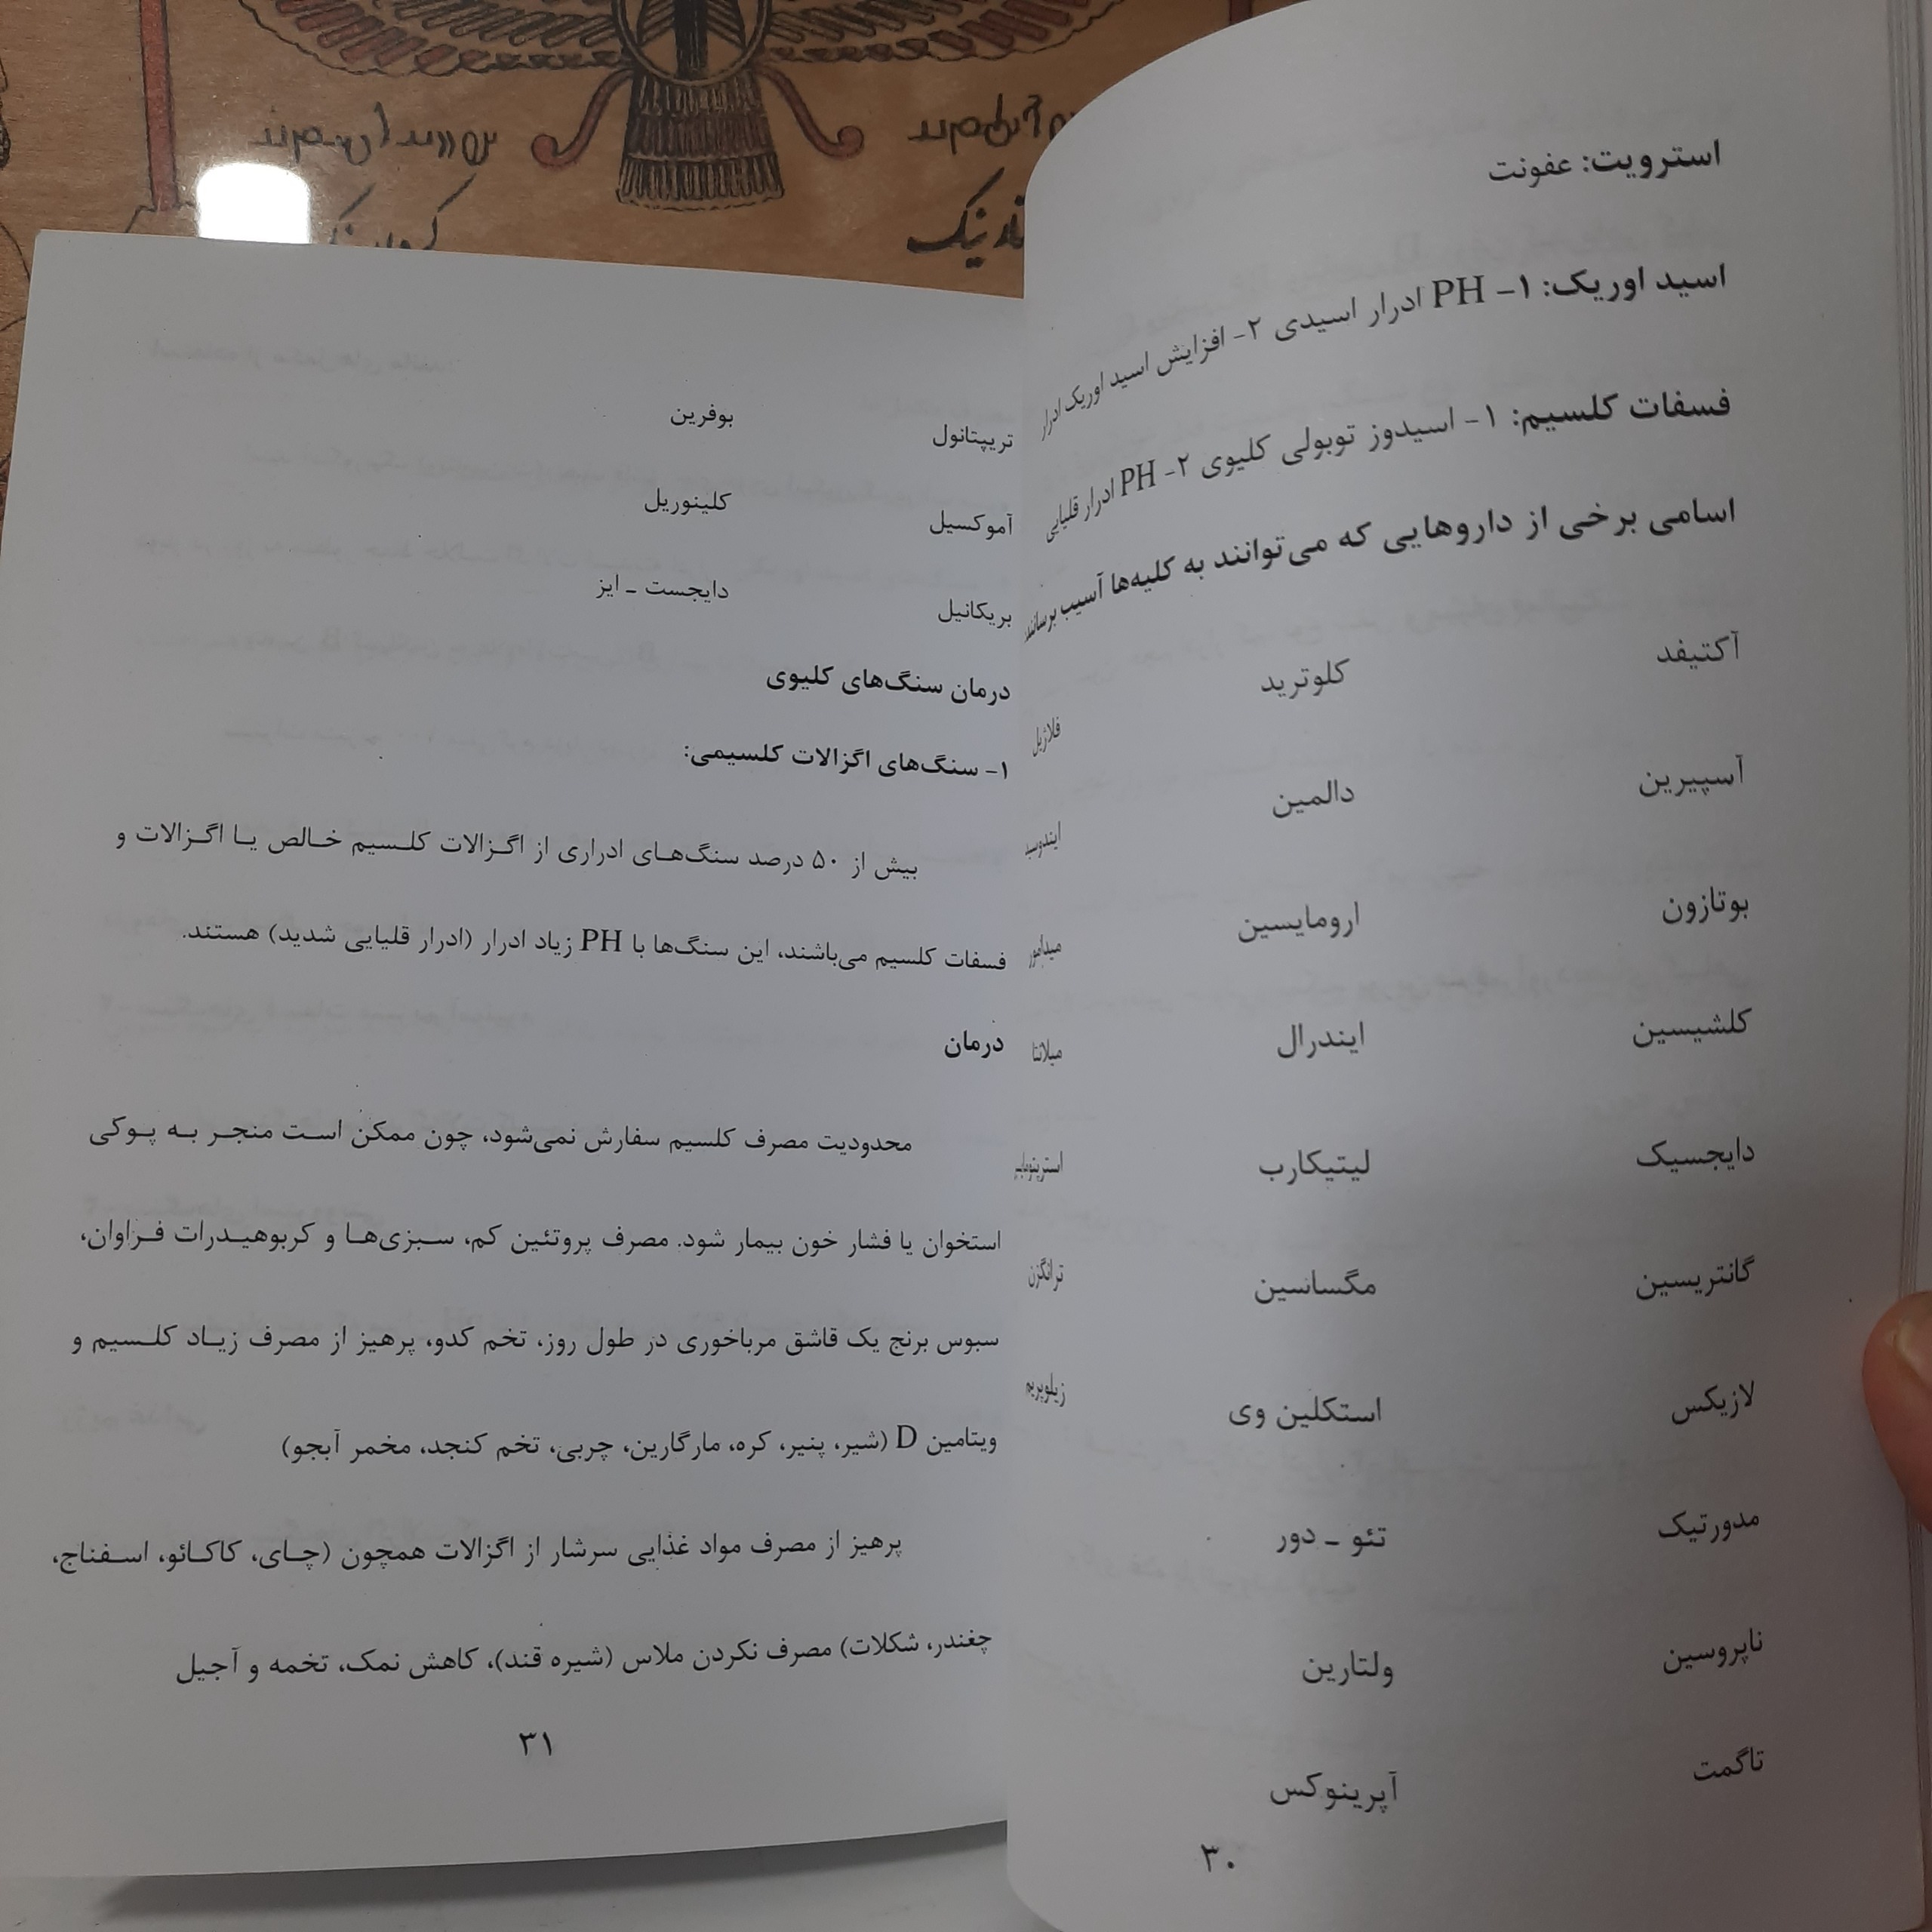 استرویت: عفونت
اسید اوریک: ۱- PH ادرار اسیدی ۲- افزایش اسید اوریک ادرار
فسفات کلسیم: ۱- اسیدوز توبولی کلیوی ۲- PH ادرار قلیایی
اسامی برخی از داروهایی که می‌توانند به کلیه‌ها آسیب برسانند
آکتیفد کلوترید فلاژیل
آسپیرین دالمین
بوتازون ارومایسین میدامور
کلشیسین ایندرال میلانتا
دایجسیک لیتیکارب
گانتریسین مگساسین ترانگزن
لازیکس استکلین وی زیلوپریم
مدورتیک تئو ـ دور
ناپروسین ولتارین
تاگمت آپرینوکس
۳۰
تریپتانول بوفرین
آموکسیل کلینوریل
بریکانیل دایجست ـ ایز
درمان سنگ‌های کلیوی
۱- سنگ‌های اگزالات کلسیمی:
بیش از ۵۰ درصد سنگ‌های ادراری از اگزالات کلسیم خالص یا اگزالات و
فسفات کلسیم می‌باشند، این سنگ‌ها با PH زیاد ادرار (ادرار قلیایی شدید) هستند.
درمان
محدودیت مصرف کلسیم سفارش نمی‌شود، چون ممکن است منجر به پوکی
استخوان یا فشار خون بیمار شود. مصرف پروتئین کم، سبزی‌ها و کربوهیدرات فراوان،
سبوس برنج یک قاشق مرباخوری در طول روز، تخم کدو، پرهیز از مصرف زیاد کلسیم و
ویتامین D (شیر، پنیر، کره، مارگارین، چربی، تخم کنجد، مخمر آبجو)
پرهیز از مصرف مواد غذایی سرشار از اگزالات همچون (چای، کاکائو، اسفناج،
چغندر، شکلات) مصرف نکردن ملاس (شیره قند)، کاهش نمک، تخمه و آجیل
۳۱